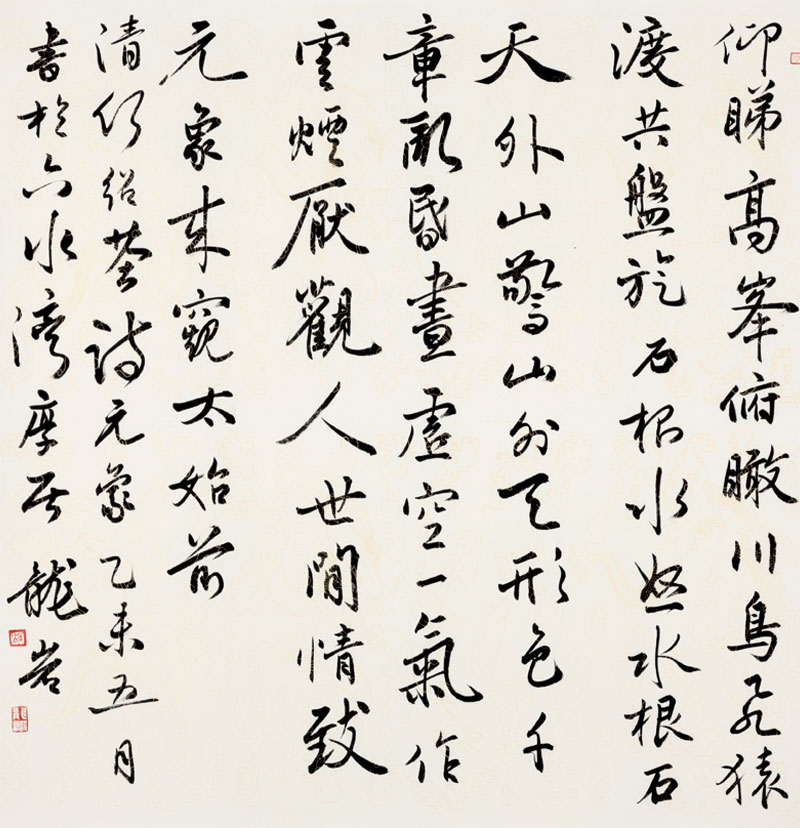 仰睇高峯俯瞰川鳥飛猿
渡共盤旋石根水怒水根石
天外山驚山外天形色千
章亂昏晝虛空一氣作
雲煙厭觀人世閒情致
元象來窺太始前
清何紹基詩元象乙未五月
書於六水灣摩居龍岩